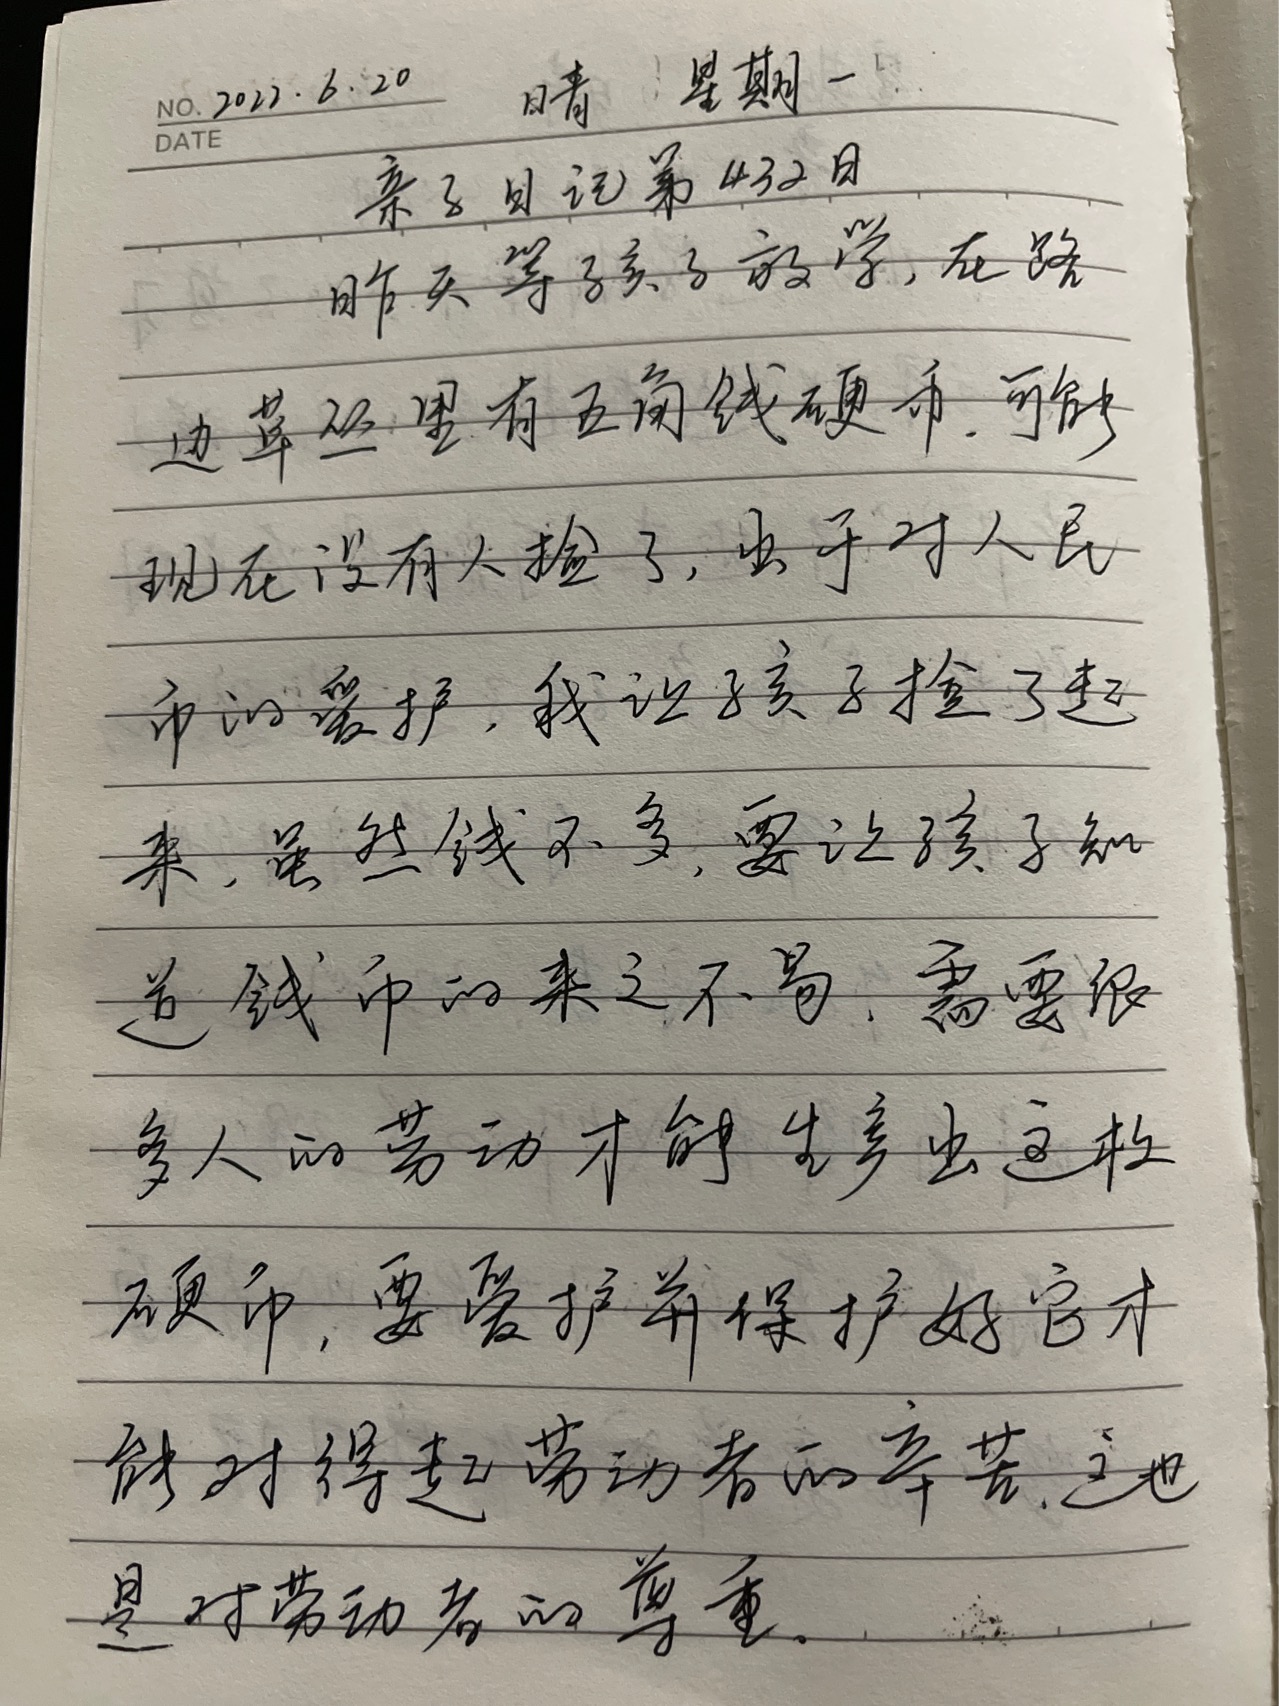 NO. 2022.6.20 晴 星期一
DATE
亲子日记第432日
昨天等孩子放学,在路
边草丛里有五角钱硬币.可能
现在没有人捡了,出于对人民
币的爱护,我让孩子捡了起
来,虽然钱不多,要让孩子知
道钱币的来之不易,需要很
多人的劳动才能生产出这枚
硬币,要爱护并保护好它才
能对得起劳动者的辛苦,这也
是对劳动者的尊重.